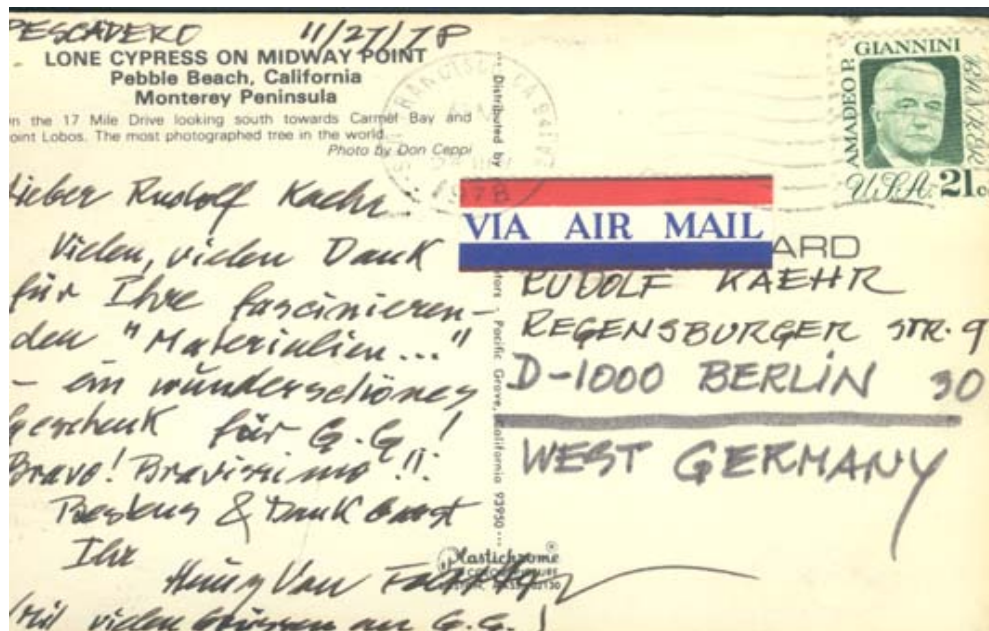 PESCADERO 11/27/78
LONE CYPRESS ON MIDWAY POINT
Pebble Beach, California
Monterey Peninsula
on the 17 Mile Drive looking south towards Carmel Bay and
oint Lobos. The most photographed tree in the world.
Photo by Don Ceppi
Lieber Rudolf Kaehr
Vielen, vielen Dank
für Ihre fascinieren-
den "Materialien..."
- ein wunderschönes
Geschenk für G.G.!
Bravo! Bravissimo!!
Bestens & Dank
Ihr
Heinz Von
Mit vielen Grüssen an G.G.!
Distributed by
tors - Pacific Grove, California 93950
Plastichrome
SAN FRANCISCO, CA
1978
AMADEO P. GIANNINI
BANKER
U.S.A. 21c
VIA AIR MAIL
ARD
RUDOLF KAEHR
REGENSBURGER STR. 9
D-1000 BERLIN 30
WEST GERMANY